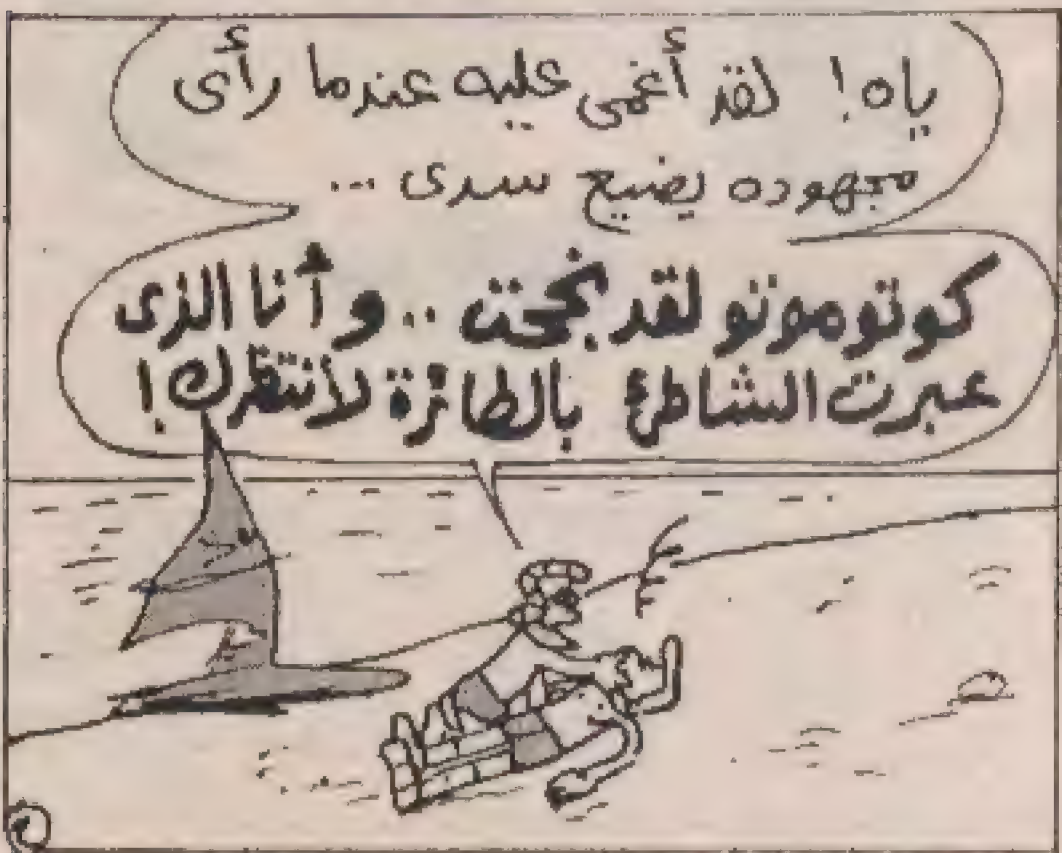 ياه! لقد أغمى عليه عندما رأى
مجهوده يضيع سدى ...
كونومونو لقد نجحت .. و أنا الذى
عبرت الشاطئ بالطائرة لأنتظرك!